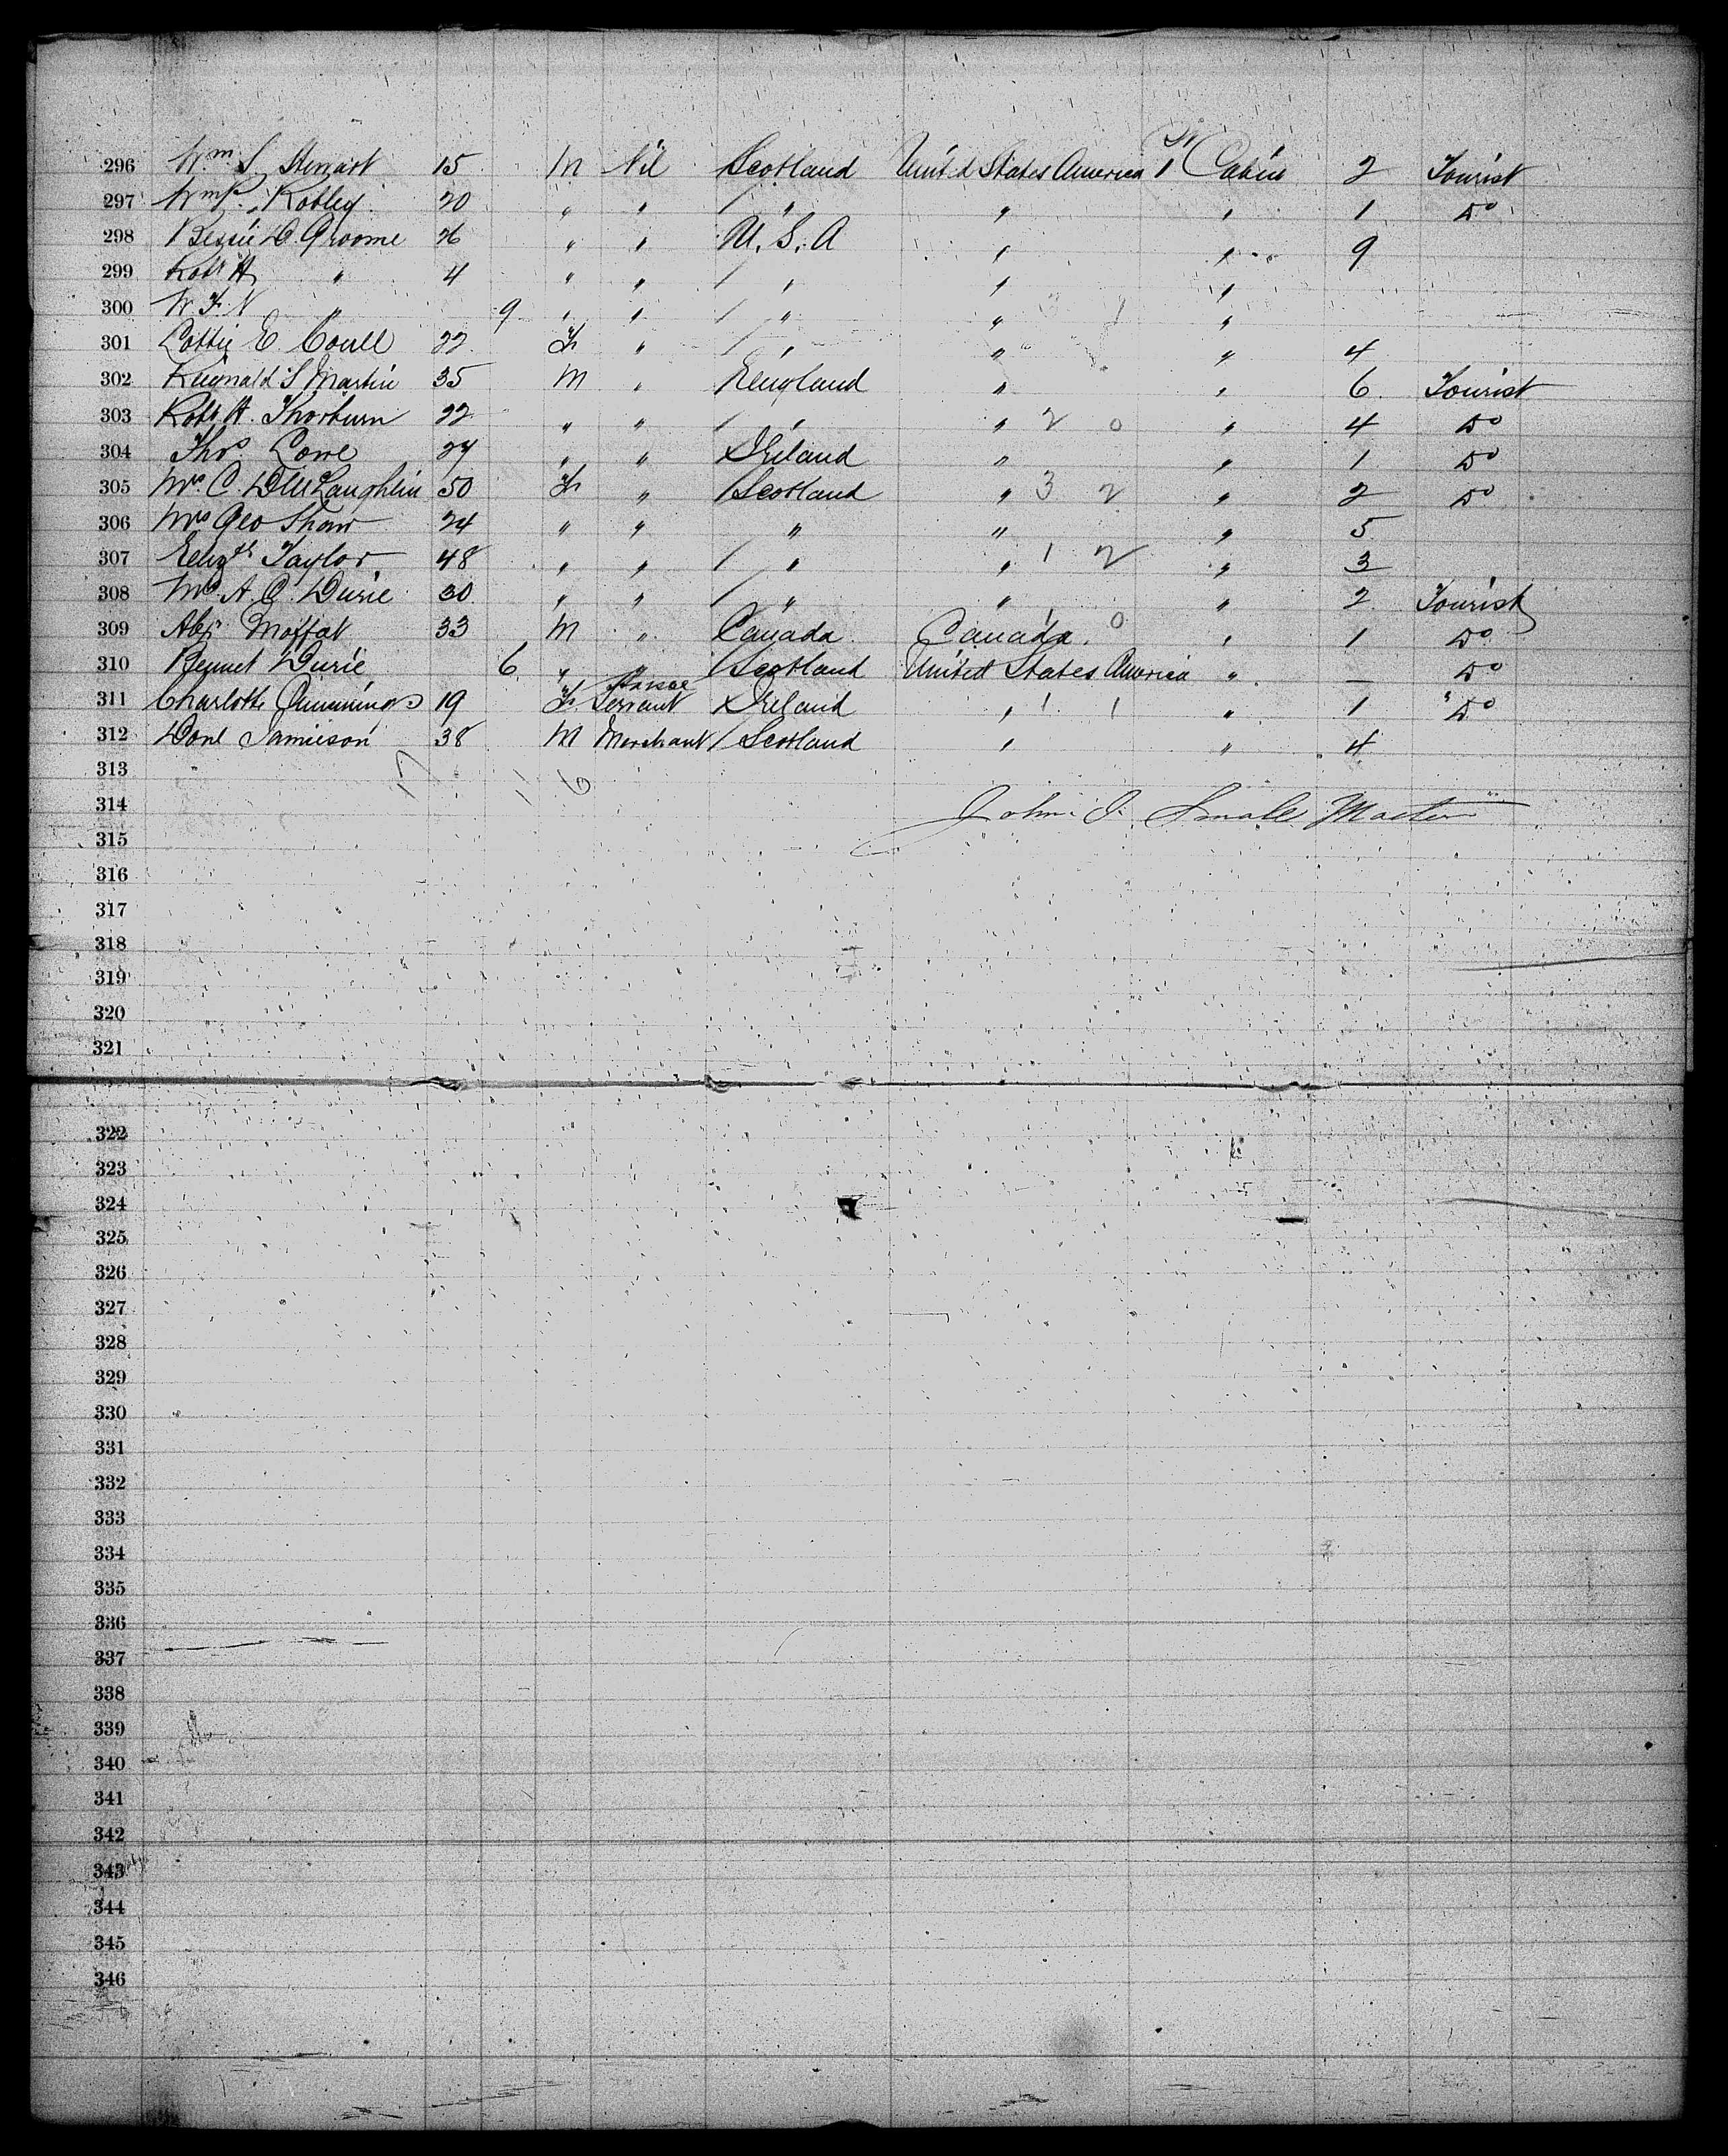 296 Wm. S. Stewart 15 M Nil Scotland United States America 1st Cabin 2 Tourist
297 Wm Robley 20 " " " " " 1 Do
298 Bessie D. Groome 26 " " U.S.A " " 9
299 Robt H. " 4 " " " " "
300 W. F. N. " 9 " " " " "
301 Lottie E. Coull 22 F " " " " 4
302 Reginald S Martin 35 M " England " " 6 Tourist
303 Robt H. Thorburn 22 " " " " 2 0 " 4 Do
304 Thos. Lowe 27 " " Ireland " " 1 Do
305 Mrs. C. McLaughlin 50 F " Scotland " 3 2 " 2 Do
306 Mrs Geo Shaw 24 " " " " " 5
307 Elizth Taylor 48 " " " " 1 2 " 3
308 Mrs A. C. Durie 30 " " " " " 2 Tourist
309 Alexr Moffat 33 M " Canada Canada 0 " 1 Do
310 Bennet Durie 6 " " Scotland United States America " — Do
311 Charlotte Cummings 19 F Servant Ireland " 1 1 " 1 Do
312 Donl Jamieson 38 M Merchant Scotland " " 4
313 17 11 6
314 John J. Small Master
315
316
317
318
319
320
321
322
323
324
325
326
327
328
329
330
331
332
333
334
335
336
337
338
339
340
341
342
343
344
345
346